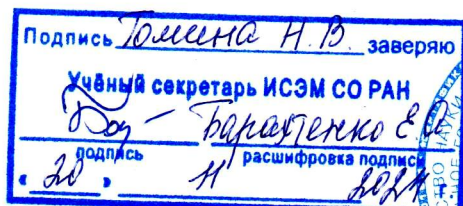 Подпись Томина Н.В. заверяю
Учёный секретарь ИСЭМ СО РАН
Барахтенко Е.А.
подпись расшифровка подписи
« 20 » 11 2024